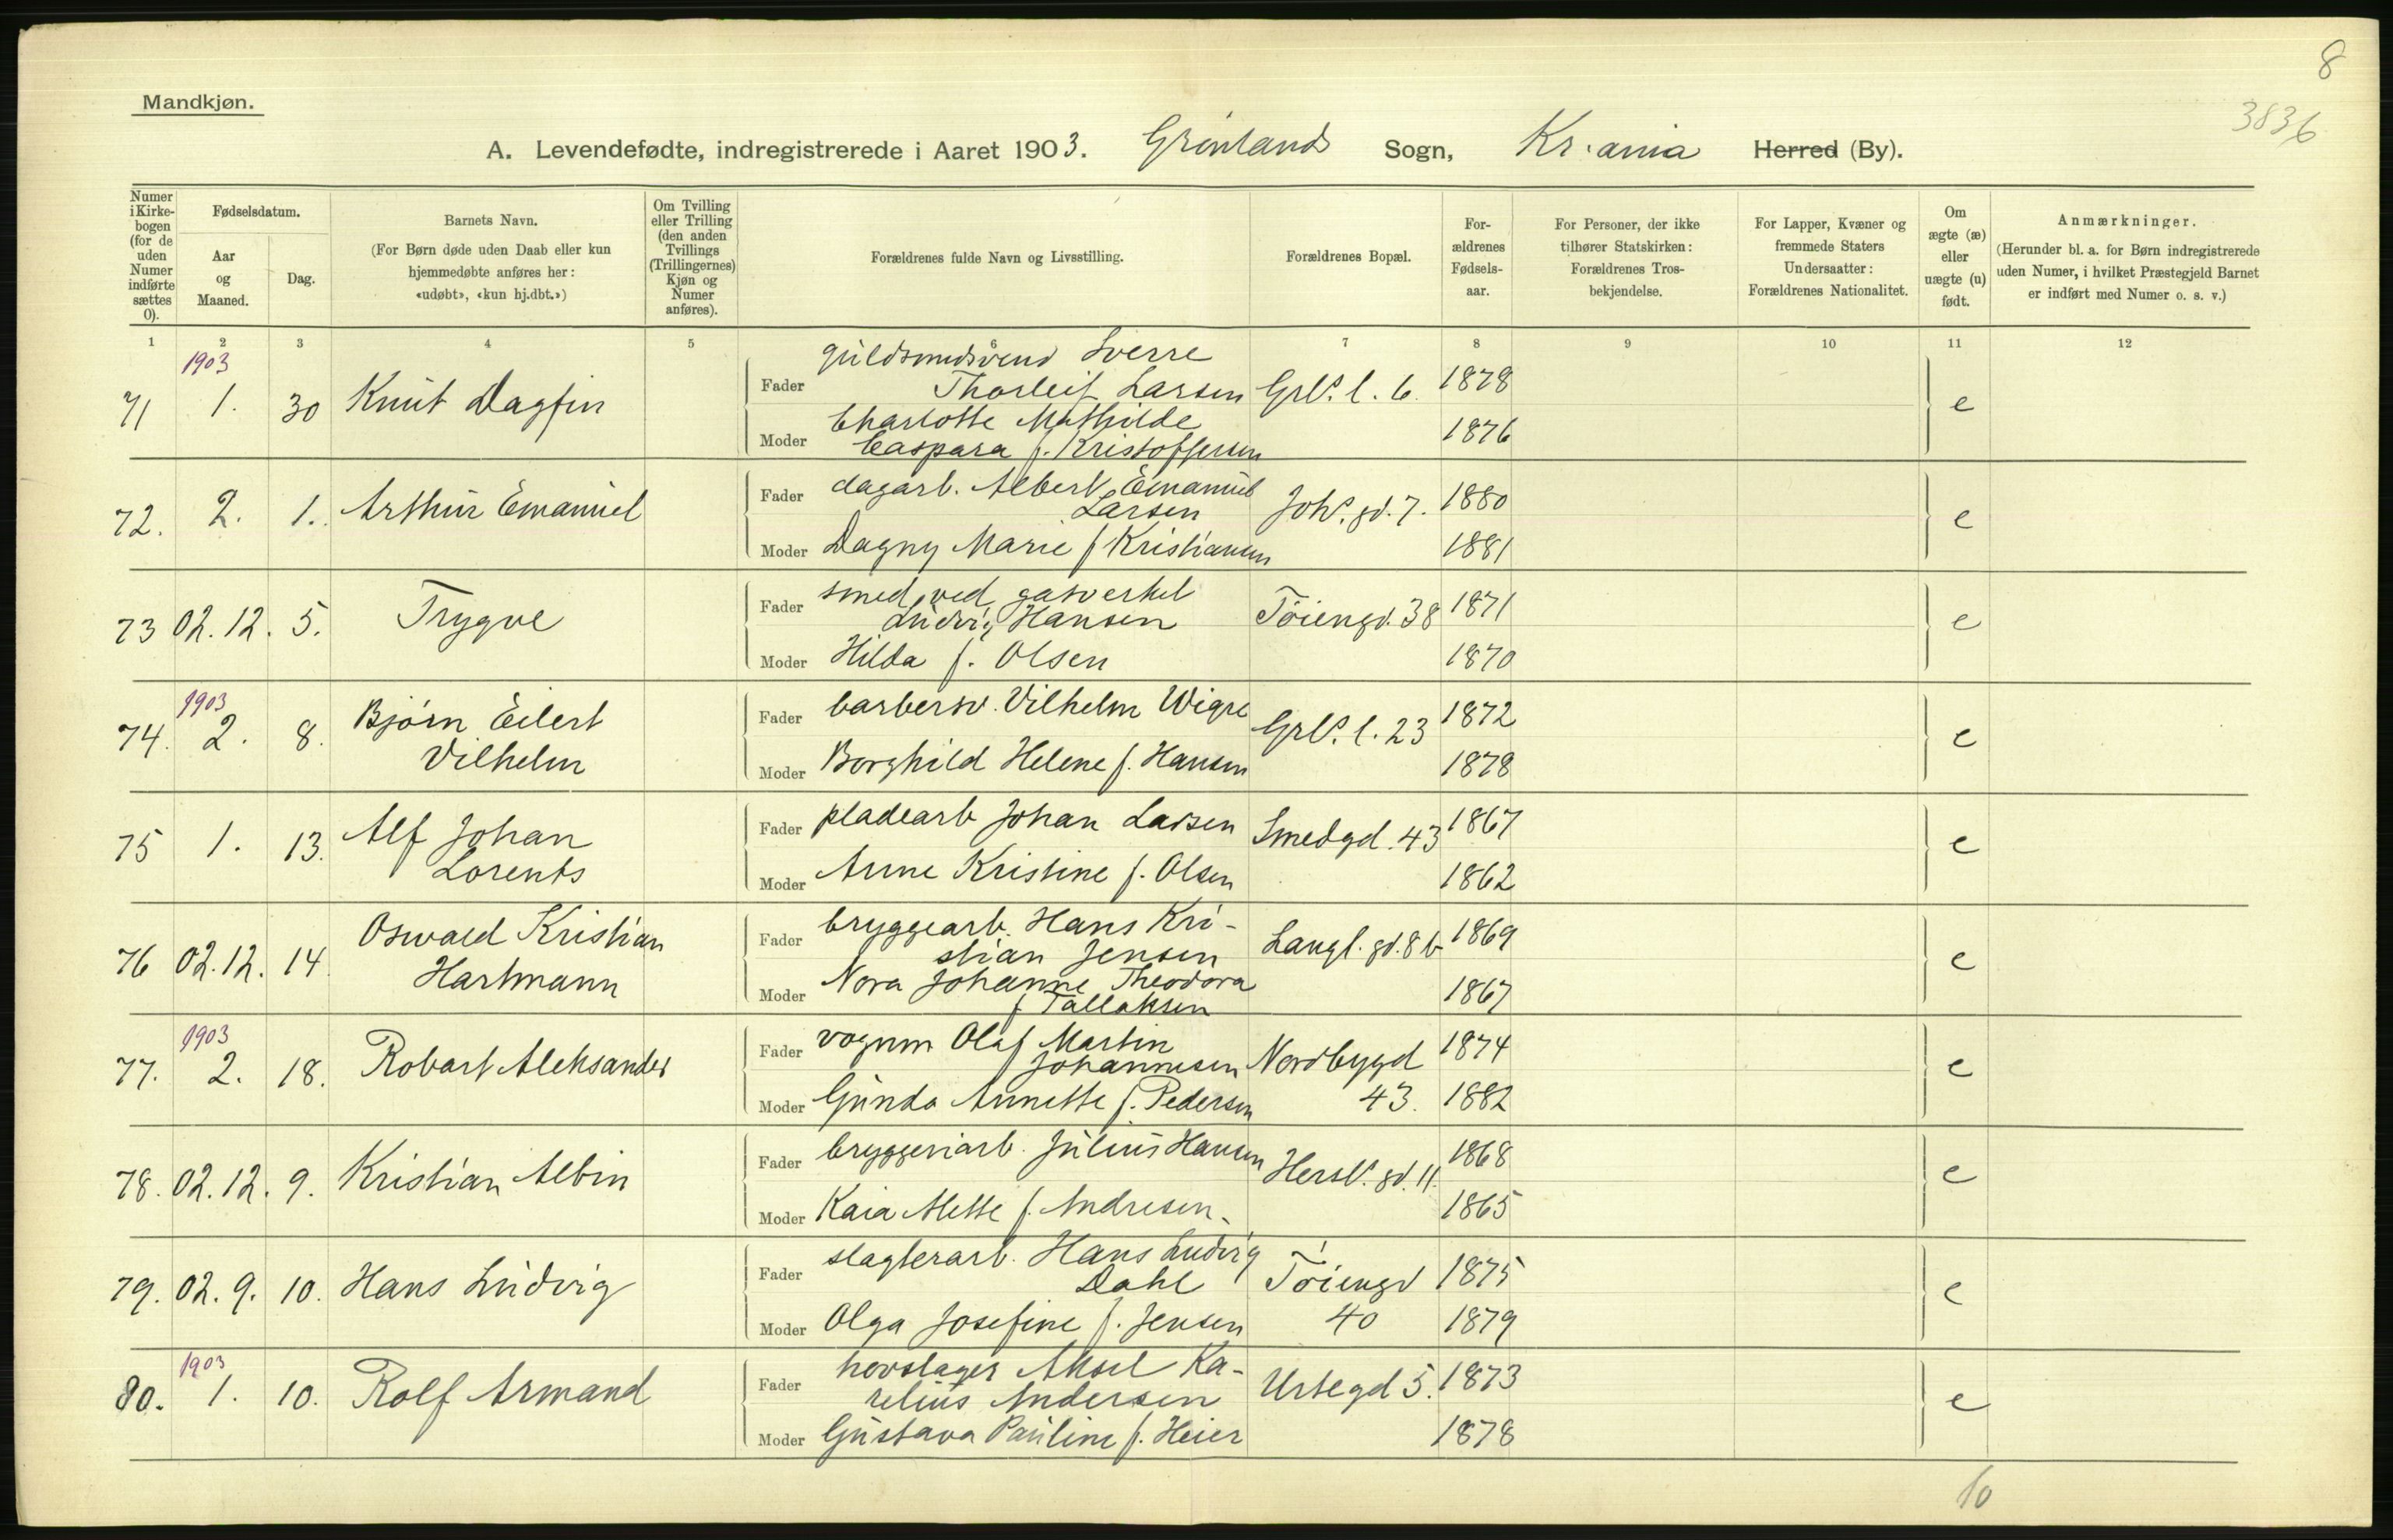 8
3836
Mandkjøn.
A. Levendefødte, indregistrerede i Aaret 1903. Grönlands Sogn, Kr.ania Herred (By).
Numer i Kirkebogen (for de uden Numer indførte sættes 0).
Fødselsdatum.
Aar og Maaned.
Dag.
Barnets Navn.
(For Børn døde uden Daab eller kun hjemmedøbte anføres her: «udøbt», «kun hj.dbt.»)
Om Tvilling eller Trilling (den anden Tvillings (Trillingernes) Kjøn og Numer anføres).
Forældrenes fulde Navn og Livsstilling.
Forældrenes Bopæl.
Forældrenes Fødselsaar.
For Personer, der ikke tilhører Statskirken: Forældrenes Trosbekjendelse.
For Lapper, Kvæner og fremmede Staters Undersaatter: Forældrenes Nationalitet.
Om ægte (æ) eller uægte (u) født.
Anmærkninger.
(Herunder bl. a. for Børn indregistrerede uden Numer, i hvilket Præstegjeld Barnet er indført med Numer o. s. v.)
1 2 3 4 5 7 8 9 10 11 12
1903
71 1. 30 Knut Dagfin
Fader guldsmedsvend Sverre
Thorleif Larsen Grl. l. 6. 1878
Moder Charlotte Mathilde
Caspara f. Kristoffersen 1876
e
72. 2. 1. Arthur Emanuel
Fader dagarb. Albert Emanuel
Larsen Joh. gd. 7. 1880
Moder Dagny Marie f Kristiansen 1881
e
73 02.12. 5. Trygve
Fader smed ved gasverket
Ludvig Hansen Töiengd. 38 1871
Moder Hilda f. Olsen 1870
e
1903
74. 2. 8. Björn Eilert
Vilhelm
Fader barbersv. Vilhelm Wigre Grl. l. 23 1872
Moder Borghild Helene f. Hansen 1878
e
75 1. 13. Alf Johan
Lorents
Fader pladearb Johan Larsen Smedgd. 43 1867
Moder Anne Kristine f. Olsen 1862
e
76 02.12. 14 Oswald Kristian
Hartmann
Fader bryggearb. Hans Kri-
stian Jensen Langl. gd. 8 b 1869
Moder Nora Johanne Theodora
f Tallaksen 1867
e
1903
77. 2. 18. Robart Aleksander
Fader vognm Olaf Martin
Johannesen Nordbygd 1874
Moder Gunda Annette f. Pedersen 43. 1882
e
78. 02.12. 9. Kristian Albin
Fader bryggeriarb. Julius Hansen Hersl. gd. 11. 1868
Moder Kaia Mette f. Andresen. 1865
e
79. 02. 9. 10. Hans Ludvig
Fader slagterarb. Hans Ludvig
Dahl Töiengd 1875
Moder Olga Josefine f. Jensen 40 1879
e
1903
80. 1. 10. Rolf Armand
Fader hovslager Aksel Ka-
relius Andersen Urtegd 5. 1873
Moder Gustava Pauline f. Heier 1878
e
10